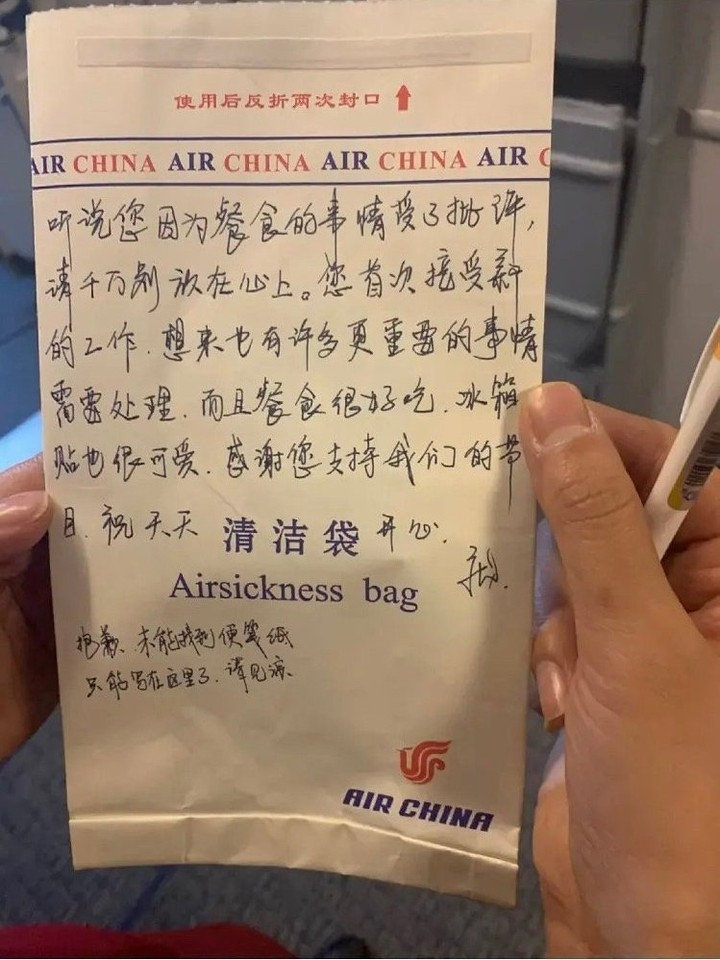 使用后反折两次封口
AIR CHINA AIR CHINA AIR CHINA AIR C
听说您因为餐食的事情受了批评,
请千万别放在心上。您首次接受新
的工作.想来也有许多更重要的事情
需要处理.而且餐食很好吃.冰箱
贴也很可爱.感谢您支持我们的节
目.祝天天开心.
清洁袋
Airsickness bag
抱歉、未能找到便笺纸
只能写在这里了.请见谅.
AIR CHINA